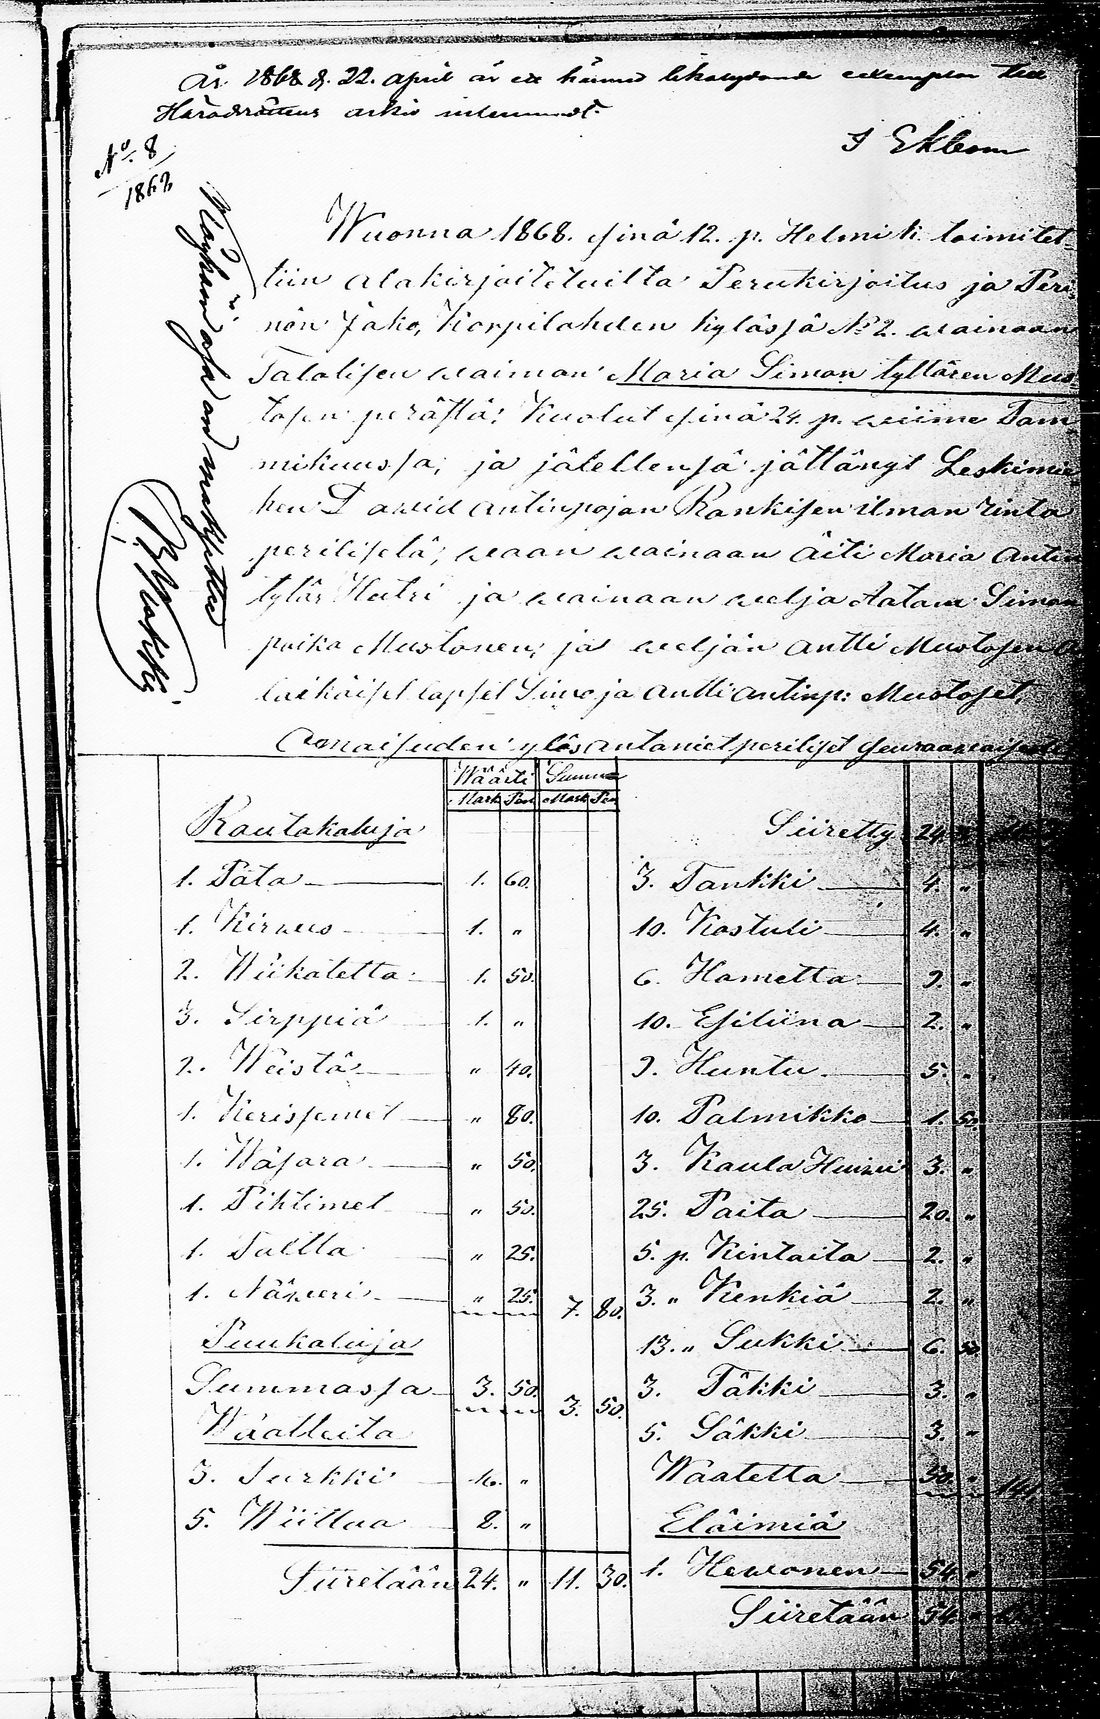 År 1868 d. 22. april är ett härmed likalydande exemplar till
Häradsrättens arkiv inlemnadt.
J Ekbom
No. 8
1868
Wuonna 1868. sinä 12. p. Helmik. toimitet-
tiin alakirjoitetuilta Perukirjoitus ja Peri-
nön Jako, Korpilahden kylässä No 2. wainaan
Talolisen waiman Maria Simon tyttären Mus-
tosen perästä: Kuolut sinä 24. p. wiime Tam-
mikuussa, ja jälellensä jättänyt Leskimie-
hen Dawid Antinpojan Rankisen ilman rinta
perilisetä, waan wainaan äiti Maria Antin
tytär Hutri ja wainaan welja Aatam Simon
poika Mustonen, ja weljän Antti Mustosen
laikäiset lapset Simo ja Antti Antinp: Mustoset,
Omaisuden ylösantaniet periliset seuraawaisesti
Wäärti Summa
Mark Pen Mark Pen
Rautakaluja
1. Pata 1. 60.
1. Kirwes 1. "
2. Wiikatetta 1. 50.
3. Sirppiä 1. "
2. Weistä " 40.
1. Kerisjemet " 80.
1. Wasara " 50.
1. Pihtimet " 50.
1. Taltta " 25.
1. Näweri " 25. 7. 80.
Puukaluja
Summassa 3. 50. 3. 50.
Waatteita
3. Turkki 16. "
5. Wiittaa 8. "
Siiretään 24. " 11. 30.
Siiretty 24. "
3. Tankki 4. "
10. Kostuli 4. "
6. Hametta 9. "
10. Esiliina 2. "
9. Huntu 5. "
10. Palmikko 1. 50
3. Kaula Huiwi 3. "
25. Paita 20. "
5. p. Kintaita 2. "
3. " Kenkiä 2. "
13. " Sukki 6. 50
3. Täkki 3. "
5. Säkki 3. "
Waatetta 50. "
Eläimiä
1. Hewonen 54. "
Siiretään 54. "